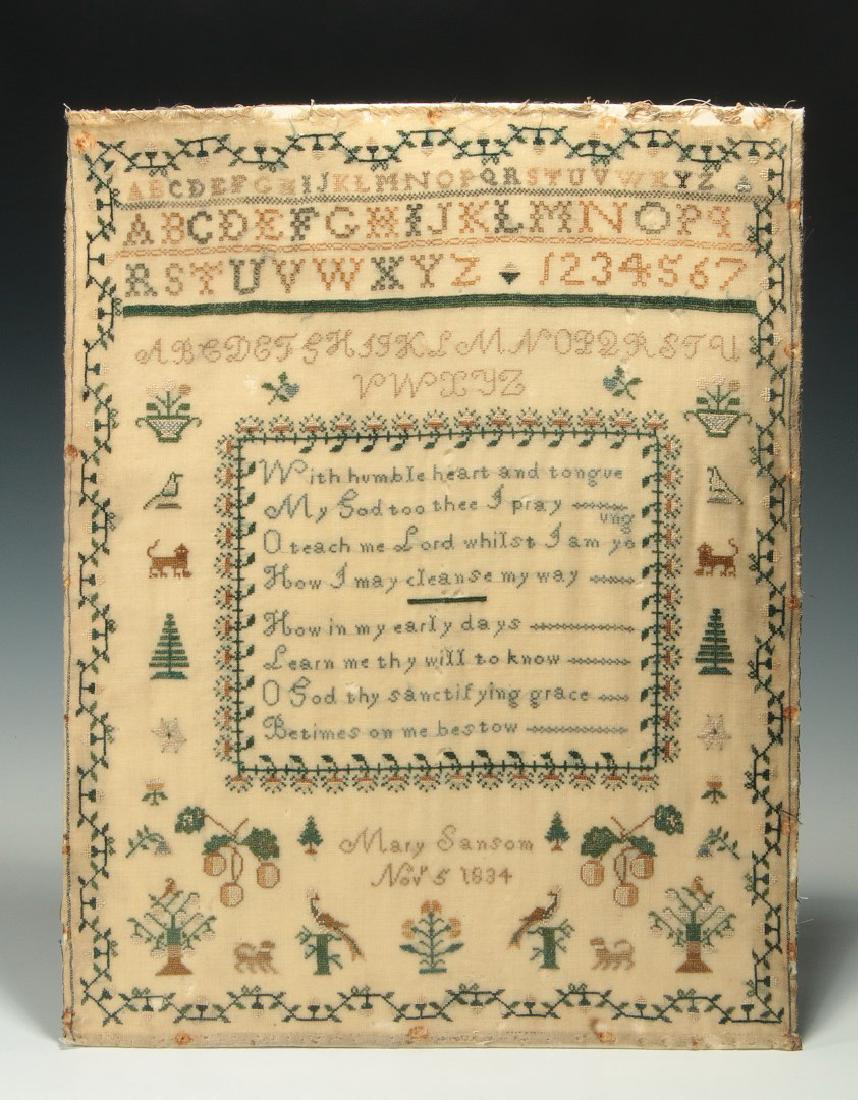 ABCDEFGHIJKLMNOPQRSTUVWXYZ
ABCDEFGHIJKLMNOPq
RSTUVWXYZ 1234567
ABCDEFGHIJKLMNOPQRSTU
VWXYZ
With humble heart and tongue
My God too thee I pray
ung
O teach me Lord whilst I am yo
How I may cleanse my way
How in my early days
Learn me thy will to know
O God thy sanctifying grace
Betimes on me bestow
Mary Sansom
Novr 5 1834